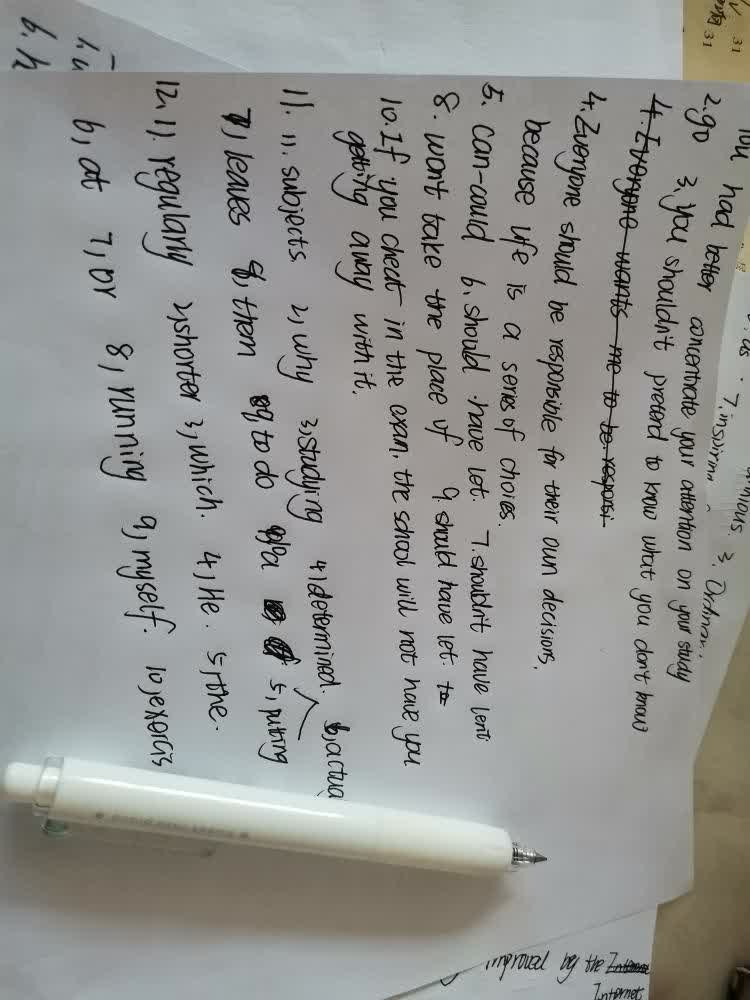 You had better concentrate your attention on your study
2.go 3, you shouldn't pretend to know what you don't know
4. Everyone wants me to be responsi
4. Everyone should be responsible for their own decisions,
because life is a series of choices.
5. can-could 6. should have let. 7. shouldn't have lent
8. won't take the place of 9. should have let. to
10. If you cheat in the exam, the school will not have you
getting away with it.
11. 1. subjects 2, why 3, studying 4, determined. 6, actual
7, leaves 8, then 9, to do 10, a 5, putting
12. 1). regularly 2, shorter 3, which. 4, He. 5, the.
6, at 7, or 8, running 9, myself. 10, exercis
3. Ordinar
7. inspiring
improved by the Internet
Internet
31
31